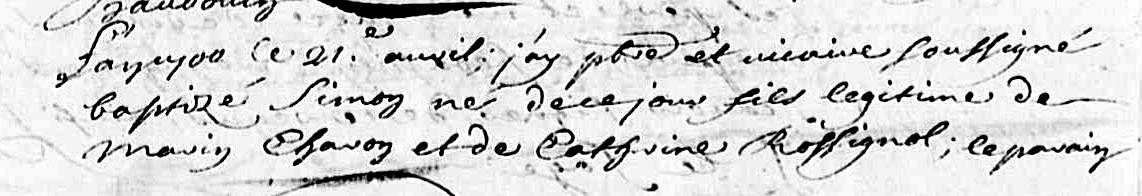 L'an 1700 le 21.e avril; j'ay pbre et vicaire soussigné
baptizé Simon né de ce jour fils legitime de
Marin Charon et de Catherine Rossignol; le parain